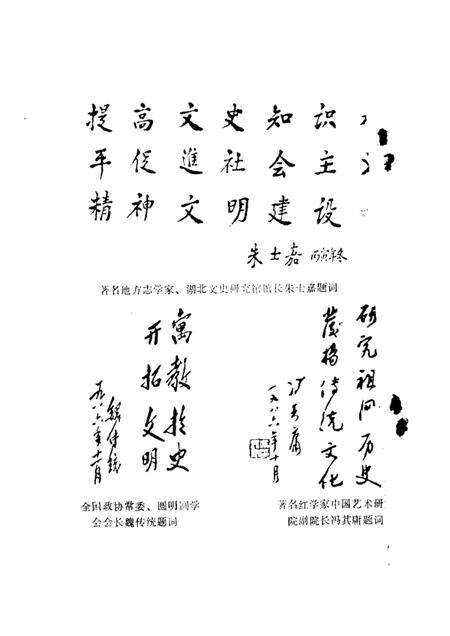 提高文史知识
平促進社会主
精神文明建设
朱士嘉 丙寅年冬
著名地方志学家、湖北文史研究馆馆长朱士嘉题词
寓教於史
开拓文明
魏传统
九八六年十一月
全国政协常委、圆明园学
会会长魏传统题词
研究祖国历史
發揚传统文化
冯其庸
一九八六年十月
著名红学家中国艺术研
究院副院长冯其庸题词